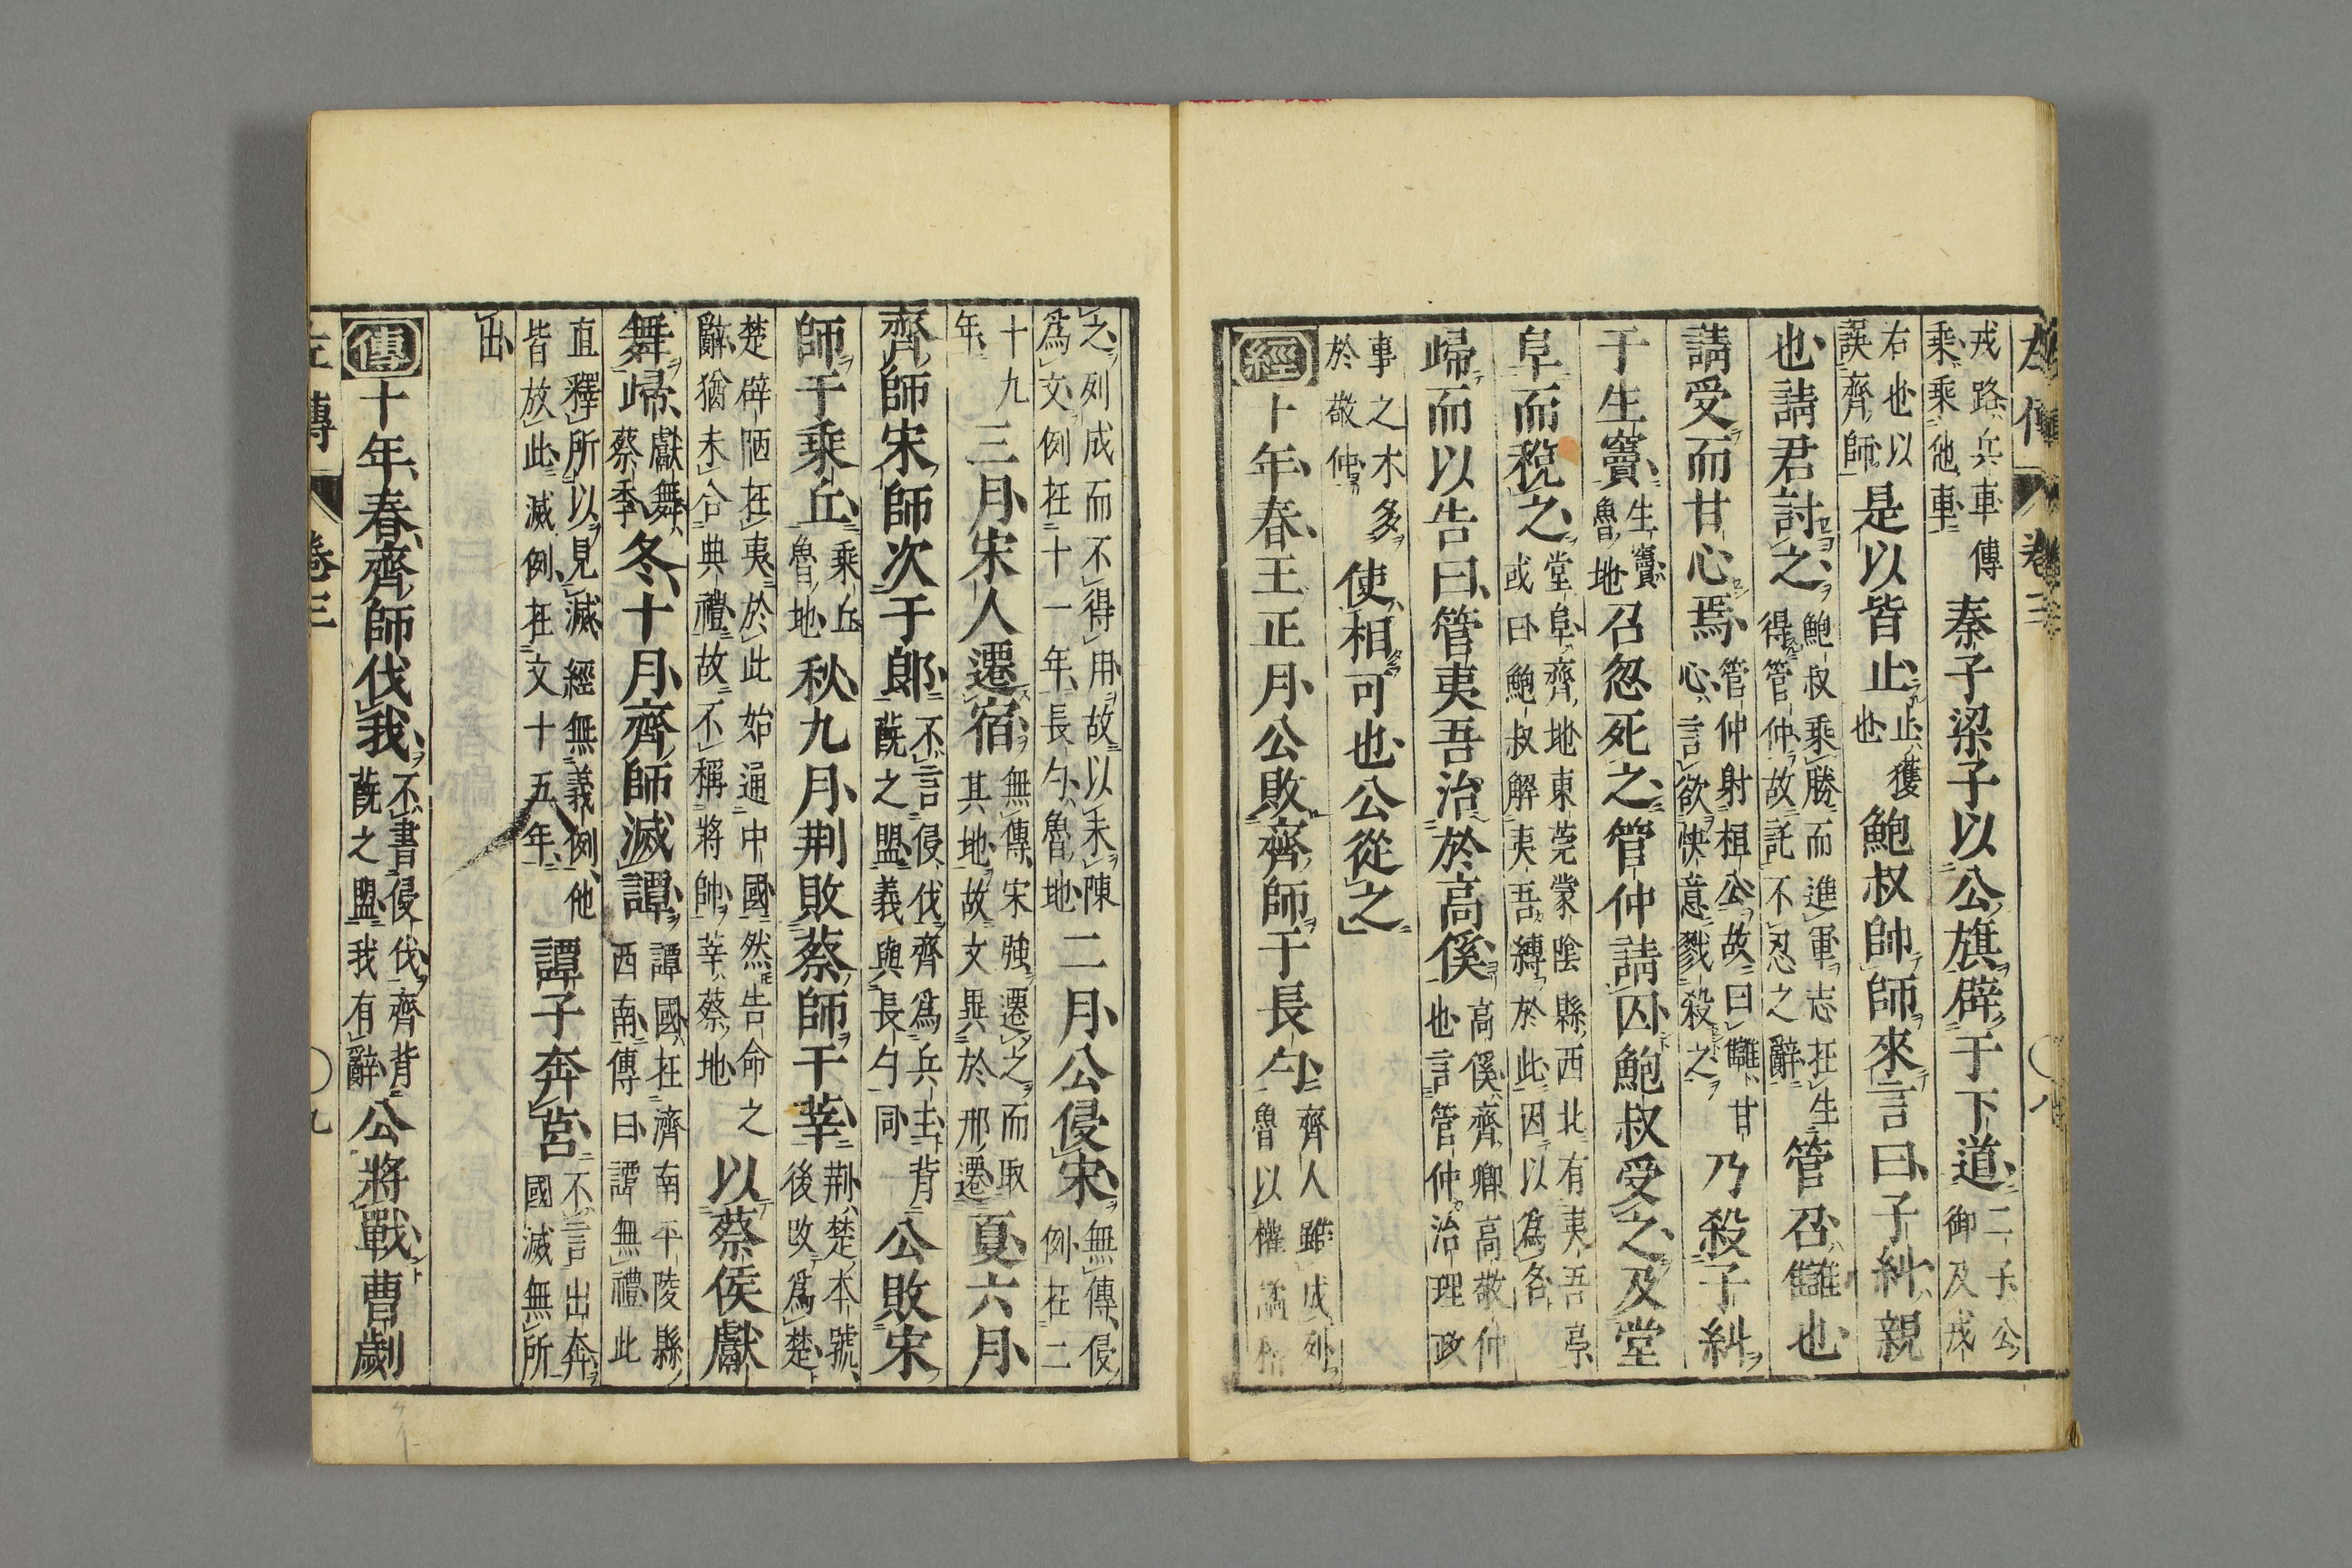 左傳 卷三 八
戎路兵車傳乘乘他車秦子梁子以公旗辟于下道二子公御及戎
右也以誤齊師是以皆止止獲也鮑叔帥師來言曰子糾親
也請君討之鮑叔乘勝而進軍志在生得管仲故託不忍之辭管召讎也
請受而甘心焉管仲射桓公故曰讎甘心言欲快意戮殺之乃殺子糾
于生竇生竇魯地召忽死之管仲請囚鮑叔受之及堂
阜而稅之堂阜齊地東莞蒙陰縣西北有夷吾亭或曰鮑叔解夷吾縛於此因以爲名
歸而以告曰管夷吾治於高傒高傒齊卿高敬仲也言管仲治理政
事之才多於敬仲使相可也公從之
經十年春王正月公敗齊師于長勺齊人雖成列魯以權譎稽
之列成而不得用故以未陳爲文例在十一年長勺魯地二月公侵宋無傳侵例在二
十九年三月宋人遷宿無傳宋強遷之而取其地故文異於邢遷夏六月
齊師宋師次于郎不言侵伐齊爲兵主背蔇之盟義與長勺同公敗宋
師于乘丘乘丘魯地秋九月荆敗蔡師于莘荆楚本號後改爲楚
楚辟陋在夷於此始通中國然告命之辭猶未合典禮故不稱將帥莘蔡地以蔡侯獻
舞歸獻舞蔡季冬十月齊師滅譚譚國在濟南平陵縣西南傳曰譚無禮此
直釋所以見滅經無義例他皆放此滅例在文十五年譚子奔莒不言出奔國滅無所
出
傳十年春齊師伐我不書侵伐齊背蔇之盟我有辭公將戰曹劌
左傳 卷三 九